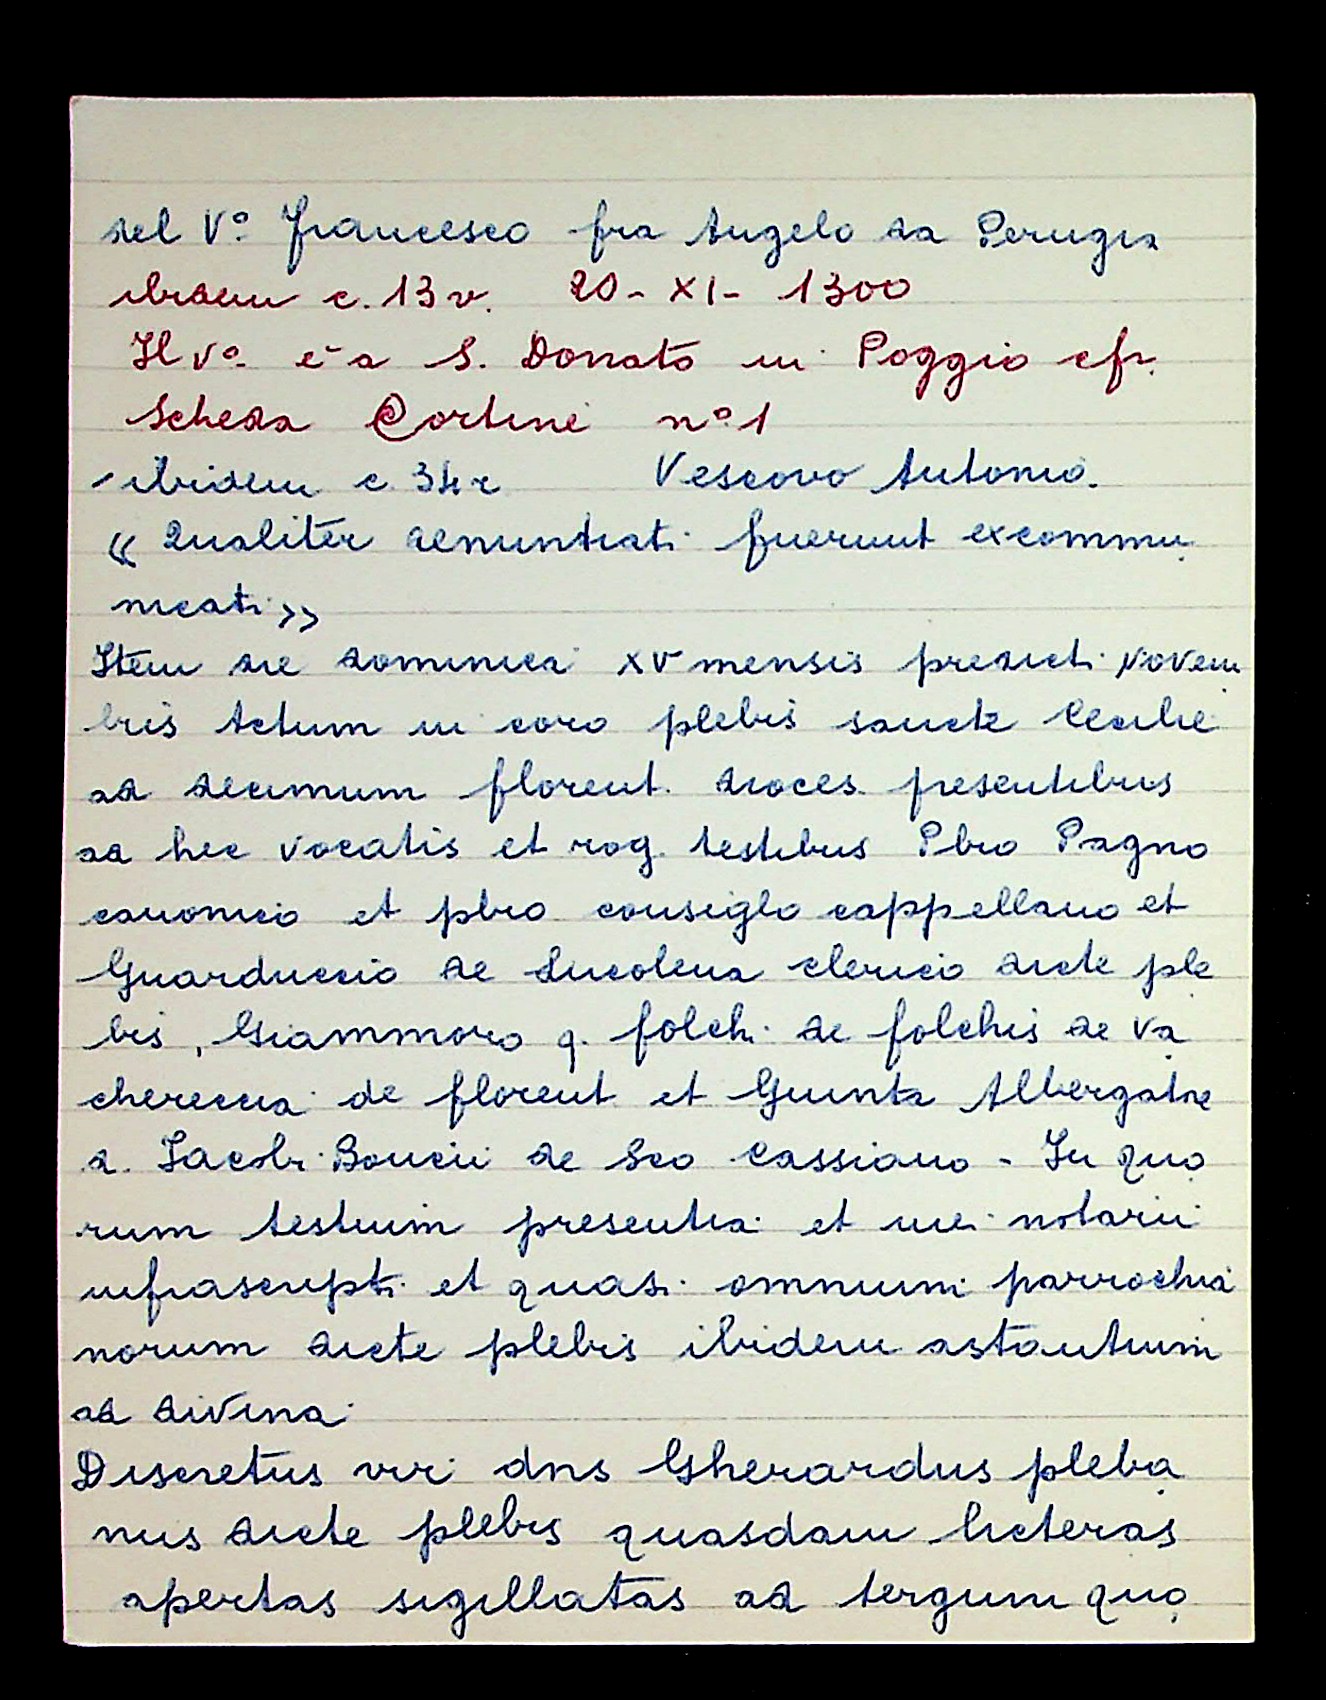 del V° Francesco fra Angelo da Perugia
ibidem c. 13 v. 20 - XI - 1300
Il v° è a S. Donato in Poggio cfr.
scheda Cortine n° 1
- ibidem c 34 r Vescovo Antonio.
« Qualiter denuntiati fuerunt excommu
nicati »
Item die dominica XV mensis predicti Novem
bris Actum in coro plebis sancte Cecilie
ad decimum florent. dioces. presentibus
ad hec vocatis et rog. testibus Pbro Pagno
canonico et pbro consiglo cappellano et
Guarduccio de Lucolena clerico dicte ple
bis, Giammoro q. folchi de folchis de Va
chereccia de florent. et Giunta Albergatore
q. Iacobi Boncii de Sco Cassiano - In quo
rum testium presentia et mei notarii
infrascripti et quasi omnium parrochia
norum dicte plebis ibidem astantium
ad divina
Discretus vir dns Gherardus pleba
nus dicte plebis quasdam licteras
apertas sigillatas ad tergum quo